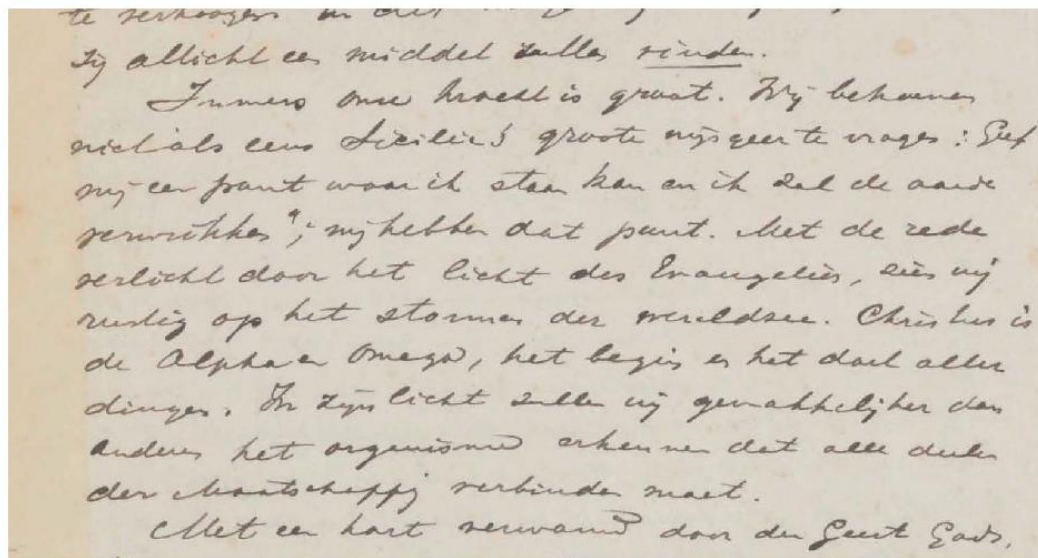 te verhoogen in dit
zij allicht een middel zullen vinden.
Immers onze kracht is groot. Wij behoeven
niet als eens Sicilie's groote wijsgeer te vragen: Geef
mij een punt waar ik staan kan en ik zal de aarde
verwrikken"; wij hebben dat punt. Met de rede
verlicht door het licht des Evangelies, zien wij
rustig op het stormen der wereldzee. Christus is
de Alpha en Omega, het begin en het doel aller
dingen. In zijn licht zullen wij gemakkelijker dan
anderen het organisme erkennen dat alle deelen
der Maatschappij verbinden moet.
Met een hart verwarmd door den Geest Gods,